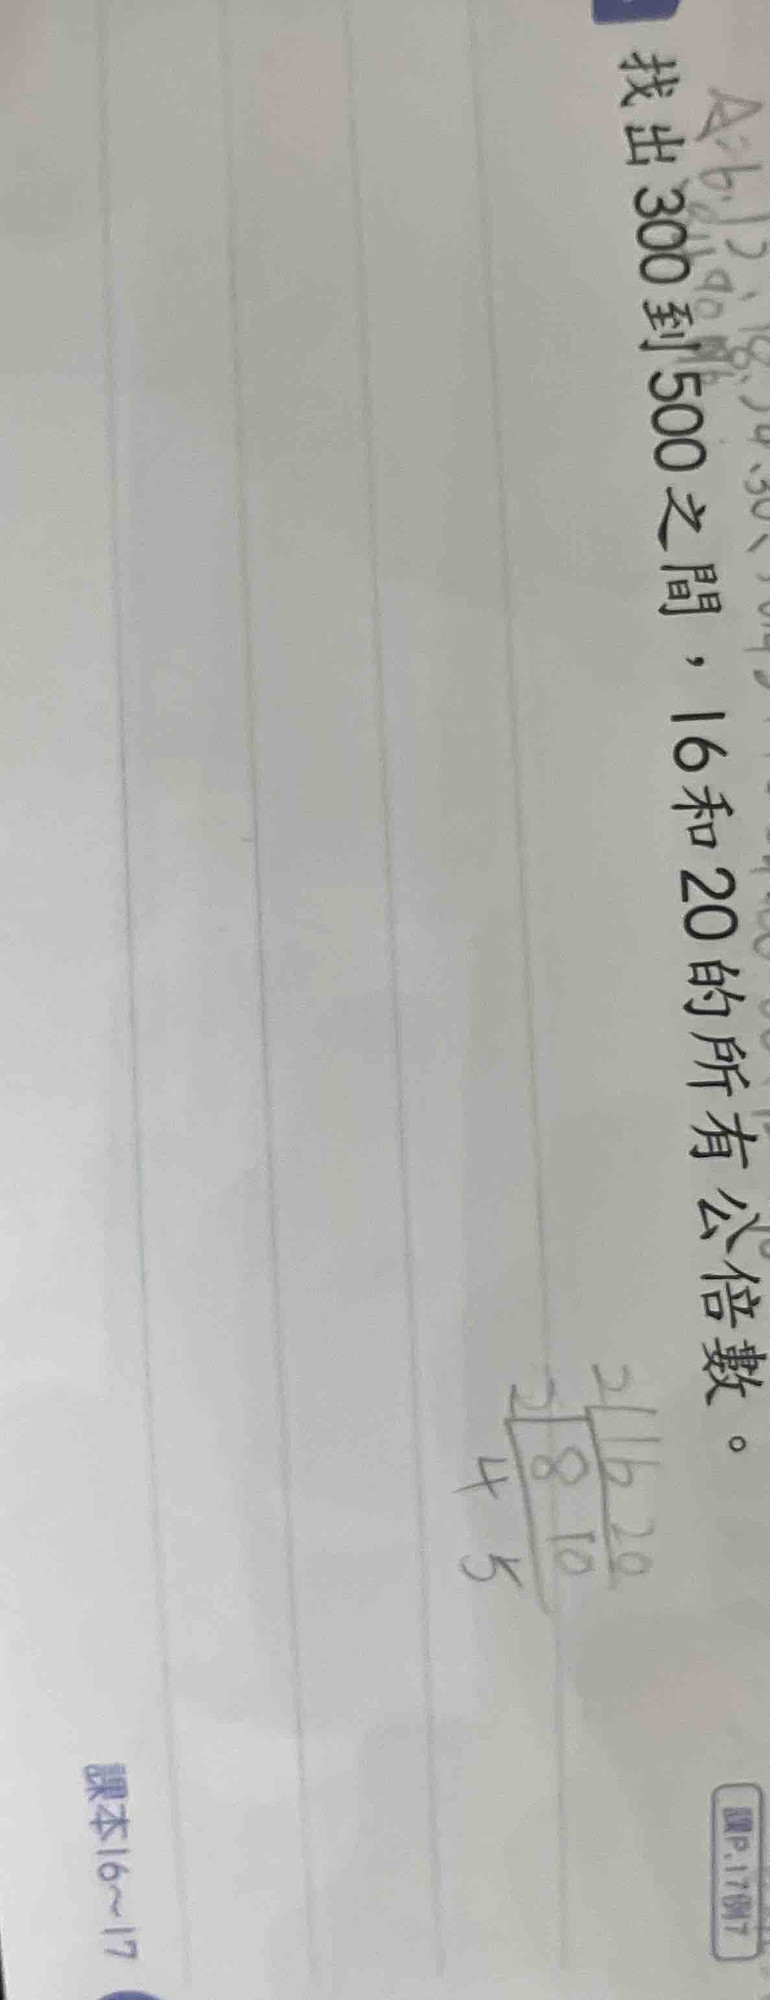 A:6.12、18、24、30、
84、90、96
找出300到500之間，16和20的所有公倍數。
2 16 20
2 8 10
4 5
課P.17例7
課本16~17